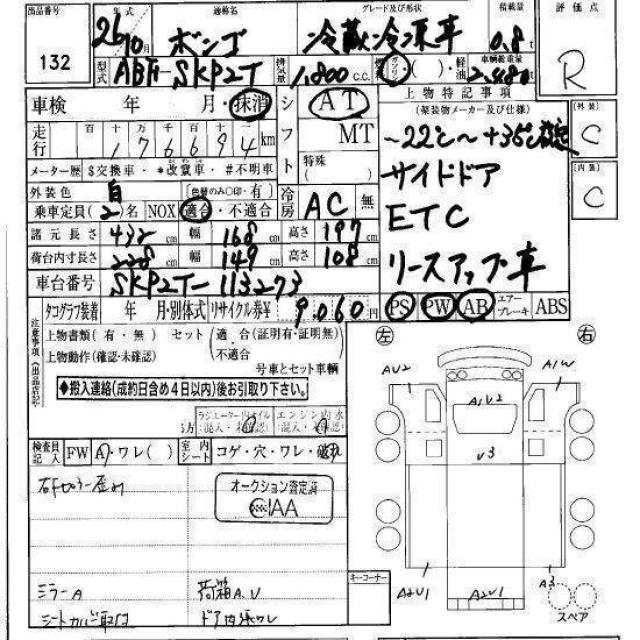 出品番号 年式 通称名 グレード及び形状 積載量 評価点
132 26年 10月 ボンゴ 冷蔵冷凍車 0.8t R
型式 ABF-SKP2T 排気量 1,800 C.C. 燃料 ガソリン ( ) 軽油 車輌総重量 2,480
車検 年 月・抹消 シフト AT 上物特記事項 外装 C
(架装物メーカー及び仕様)
走行 百 十 万 千 百 十 176694 km MT -22℃~+35℃設定 内装 C
メーター歴 $交換車・*改竄車・#不明車 特殊 ( ) サイドドア
外装色 白 (色替のみ○印・有) 冷房 AC 無 ETC
乗車定員(2)名 NOX 適合・不適合
諸元長さ 432cm 幅 168cm 高さ 197cm リースアップ車
荷台内寸長さ 228cm 幅 149cm 高さ 108cm
車台番号 SKP2T-113273 PS PW AB エアーブレーキ ABS
タコグラフ装着 年 月・別体式 リサイクル券¥ 9,060円
注意事項(出品店記入) 上物書類(有・無) セット(適合(証明有・証明無)・不適合 左 右
上物動作(確認・未確認) 号車とセット車輌
◆搬入連絡(成約日含め4日以内)後お引取り下さい。
ラジエーター内オイル混入・未確認 エンジン内水混入・未確認
検査員記入 FW A・ワレ( ) 室内シート コゲ・穴・ワレ・破れ
オークション査定済
CIAA
AU2 A1W
A1V2
U3
A2U1 A2V1 A3
スペア
キーコーナー
ミラーA 荷箱A.U
シートカバー取付 ドア内張ワレ